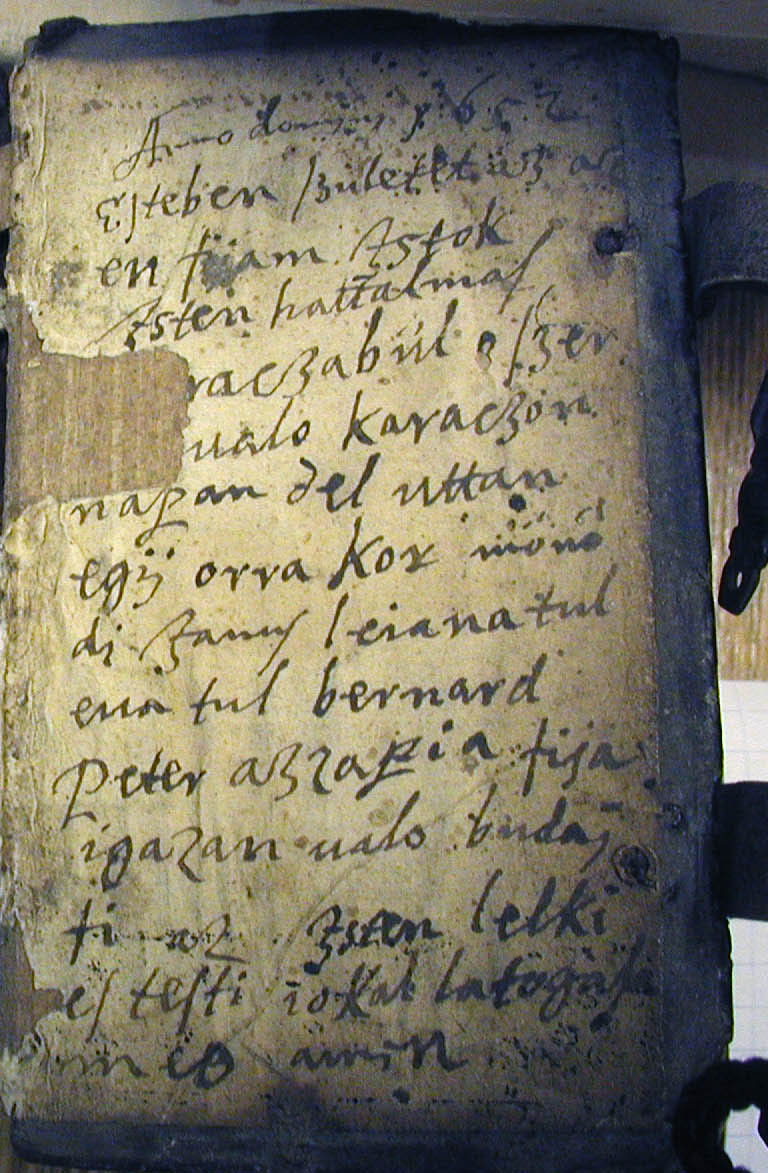 Anno domini 1652
Esteben szuletet az
en fiam Istok
Isten hattalmas
raczabul eszer
ualo karaczon
napan del uttan
egÿ orra kor
di Ianus leianatul
eua tul bernard
Peter azzapia fija
igazan ualo budaj
fi az Isten lelki
es testi iokal latogassa
meg amin